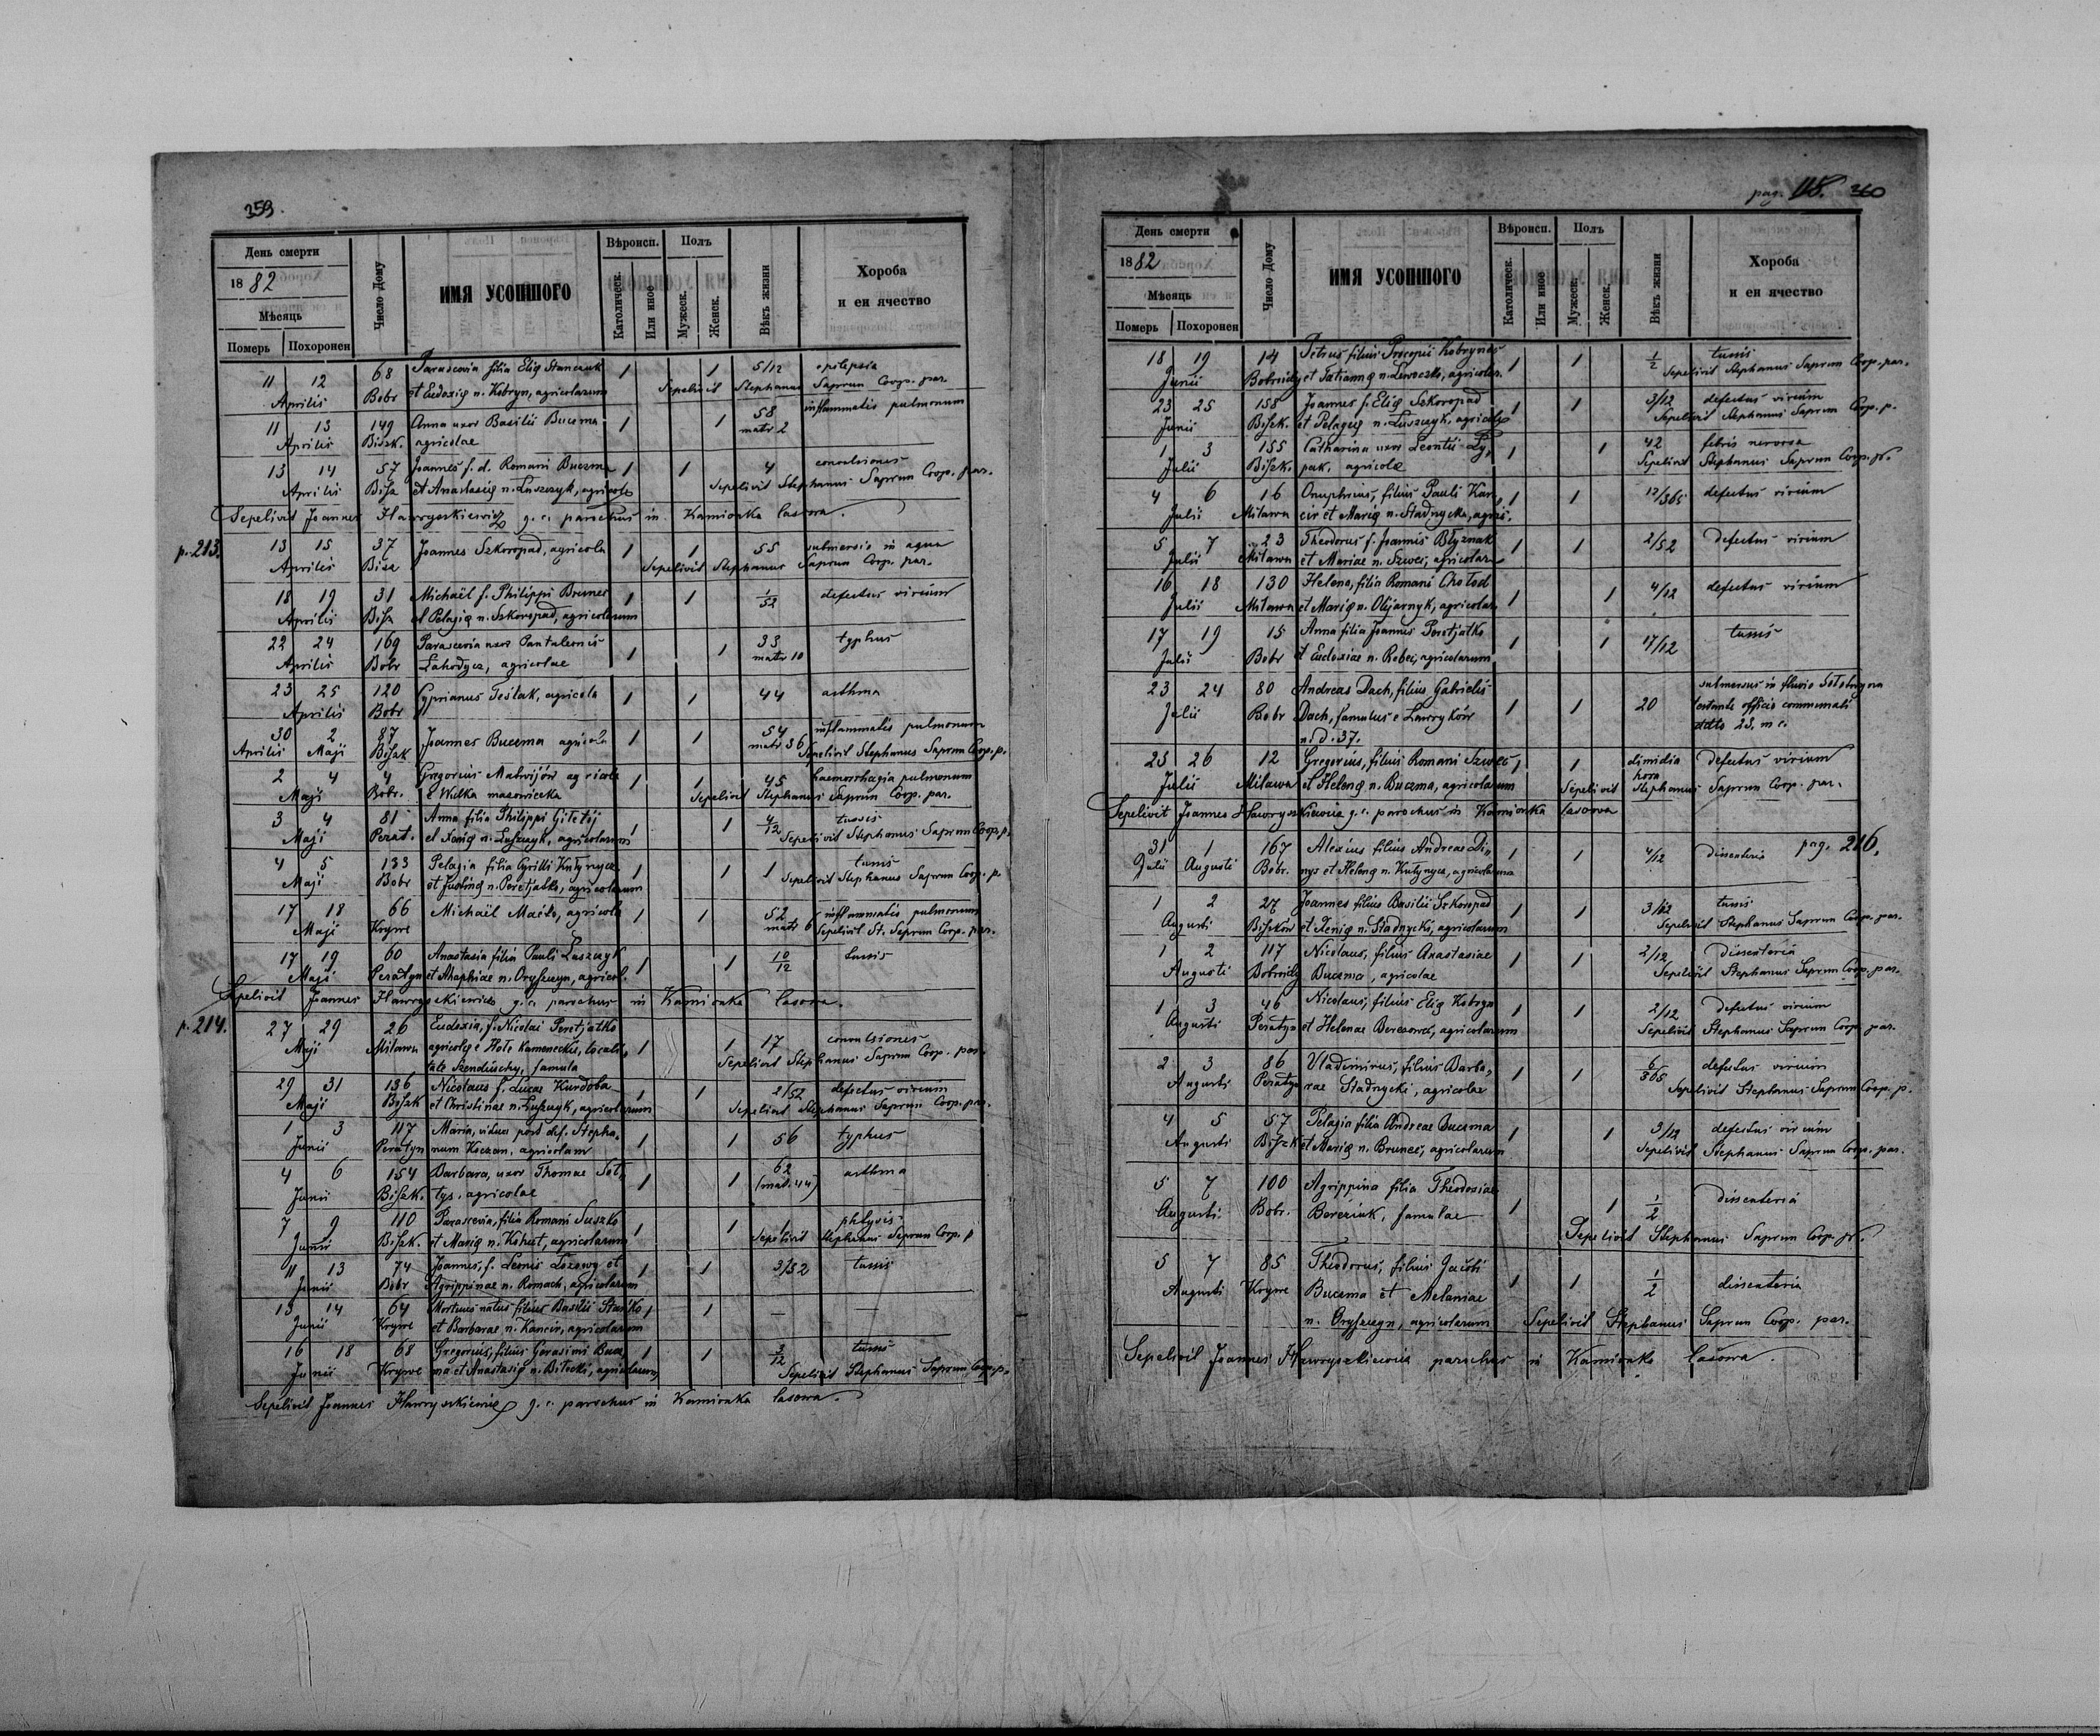 359.
День смерти
1882
Мѣсяць
Померъ Похоронен
Число Дому
ИМЯ УСОПШОГО
Вѣроисп.
Католическ.
Или иное
Полъ
Мужеск.
Женск.
Вѣкъ жизни
Хороба
и еи ячество
11 12 68 Parascevia filia Elię Stanczuk 1 1 5/12 epilepsia
Aprilis Bobr et Eudoxię n. Kobryn, agricolarum Sepelivit Stephanus Saprun Coop. par.
11 13 149 Anna uxor Basilii Buczma 1 1 58 inflammatio pulmonum
Aprilis Biszk. agricolae matr 2
13 14 57 Joannes f. d. Romani Buczma 1 1 4 convulsiones
Aprilis Bisz et Anastasię n. Łuszczyk, agricolę Sepelivit Stephanus Saprun Coop. par.
Sepelivit Joannes Hawryszkiewicz g. c. parochus in Kamionka lasowa.
p. 213.
13 15 37 Joannes Szkoropad, agricola 1 1 55 submersio in aqua
Aprilis Bisz Sepelivit Stephanus Saprun Coop. par.
18 19 31 Michaël f. Philippi Brunec 1 1 1/52 defectus virium
Aprilis Bisz et Pelagię n. Szkoropad, agricolarum
22 24 169 Parascevia uxor Pantaleonis 1 1 33 typhus
Aprilis Bobr Lahodycz, agricolae matr 10
23 25 120 Cyprianus Teslak, agricola 1 1 44 asthma
Aprilis Bobr
30 2 87 Joannes Buczma agricola 1 1 54 inflammatio pulmonum
Aprilis Maji Biszk matr 36 Sepelivit Stephanus Saprun Coop. p.
2 4 4 Gregorius Matwijów agricola 1 1 45 haemorrhagia pulmonum
Maji Bobr. e Wulka mazowiecka Sepelivit Stephanus Saprun Coop. par.
3 4 81 Anna filia Philippi 1 1 4/12 tussis
Maji Perat. et Xenię n. Łuszczyk, agricolarum Sepelivit Stephanus Saprun Coop. p.
4 5 133 Pelagia filia Cyrilli Kutynycz 1 1 1 tussis
Maji Bobr et Justinę n. Peretjatko, agricolarum Sepelivit Stephanus Saprun Coop. p.
17 18 66 Michaël Maćko, agricola 1 1 52 inflammatio pulmonum
Maji Krywe matr 6 Sepelivit St. Saprun Coop. par.
17 19 60 Anastasia filia Pauli Łuszczyk 1 1 10/12 tussis
Maji Peratyn et Ahaphiae n. Oryszczyn, agricol.
Sepelivit Joannes Hawryszkiewicz g. c. parochus in Kamionka lasowa.
p. 214.
27 29 26 Eudoxia, f. Nicolai Peretjatko 1 1 17 convulsiones
Maji Milawa agricolę e Hołe Kameneckie, locali- Sepelivit Stephanus Saprun Coop. par.
tate Szendiuchy, famula
29 31 136 Nicolaus f. Lucae Kurdoba 1 1 2/52 defectus virium
Maji Biszk et Christinae n. Łuszczyk, agricolarum Sepelivit Stephanus Saprun Coop. par.
1 3 117 Maria, vidua post def. Stepha- 1 1 56 typhus
Junii Peratyn num Koczan, agricolam
4 6 154 Barbara, uxor Thomae Soł- 1 1 62 asthma
Junii Biszk. tys, agricolae (mat. 44)
7 9 110 Parascevia, filia Romani Suszko 1 1 1 phtysis
Junii Biszk. et Marię n. Kohut, agricolarum Sepelivit Stephanus Saprun Coop. p
11 13 74 Joannes, f. Leonis Łozowy et 1 1 3/52 tussis
Junii Bobr Agrippinae n. Romach, agricolarum
13 14 64 Mortuus natus filius Basilii Stańko 1 1 — —
Junii Krywe et Barbarae n. Kancir, agricolarum
16 18 68 Gregorius, filius Gerasimi Bucz- 1 1 3/12 tussis
Junii Krywe ma et Anastasię n. Biłecki, agricolarum Sepelivit Stephanus Saprun Coop. p.
Sepelivit Joannes Hawryszkiewicz g. c. parochus in Kamionka lasowa.
pag. 118. 360
День смерти
1882
Мѣсяць
Померь Похоронен
Число Дому
ИМЯ УСОПШОГО
Вѣроисп.
Католическ.
Или иное
Полъ
Мужеск.
Женск.
Вѣкъ жизни
Хороба
и еи ячество
18 19 14 Petrus filius Procopii Kobryn 1 1 1/2 tussis
Junii Bobroidy et Tatianę n. Lewczko, agricolar. Sepelivit Stephanus Saprun Coop. par.
23 25 158 Joannes f. Elię Szkoropad 1 1 3/12 defectus virium
Junii Biszk. et Pelagię n. Łuszczyk, agricolę Sepelivit Stephanus Saprun Coop. p.
1 3 155 Catharina uxor Leontii Ły- 1 1 42 febris nervosa
Julii Biszk. pak, agricolę Sepelivit Stephanus Saprun Coop. p.
4 6 16 Onuphrius, filius Pauli Kan- 1 1 12/365 defectus virium
Julii Milawa cir et Marię n. Stadnycka, agric.
5 7 23 Theodorus f. Joannis Błyznak 1 1 2/52 defectus virium
Julii Milawa et Mariae n. Szwec, agricolar.
16 18 130 Helena, filia Romani Chołod 1 1 4/12 defectus virium
Julii Milawa et Marię n. Olijarnyk, agricolar.
17 19 15 Anna filia Joannis Peretjatko 1 1 17/12 tussis
Julii Bobr et Eudoxiae n. Rebec, agricolarum
23 24 80 Andreas Dach, filius Gabrielis 1 1 20 submersus in fluvio
Julii Bobr Dach, famulus e Ławryków testante officio communali
n. d. 37. ddto 23. m. c.
25 26 12 Gregorius, filius Romani Szwec 1 1 dimidia defectus virium
Julii Milawa et Helenę n. Buczma, agricolarum hora Sepelivit Stephanus Saprun Coop. par.
Sepelivit Joannes Hawryszkiewicz g. c. parochus in Kamionka lasowa
pag. 216.
31 1 167 Alexius filius Andreae Di- 1 1 4/12 dissenteria
Julii Augusti Bobr. nys et Helenę n. Kutynycz, agricolarum
1 2 27 Joannes filius Basilii Szkoropad 1 1 3/12 tussis
Augusti Biszków et Xenię n. Stadnycki, agricolarum Sepelivit Stephanus Saprun Coop. par.
1 2 117 Nicolaus, filius Anastasiae 1 1 2/12 dissenteria
Augusti Bobroidy Buczma, agricolae Sepelivit Stephanus Saprun Coop. par.
1 3 46 Nicolaus, filius Elię Kobryn 1 1 2/12 defectus virium
Augusti Peratyn et Helenae Berezowa, agricolarum Sepelivit Stephanus Saprun Coop. par.
2 3 86 Vladimirus, filius Barba- 1 1 6/365 defectus virium
Augusti Peratyn rae Stadnycki, agricolae Sepelivit Stephanus Saprun Coop. p.
4 5 57 Pelagia filia Andreae Buczma 1 1 3/12 defectus virium
Augusti Biszk et Marię n. Brunec, agricolarum Sepelivit Stephanus Saprun Coop. par.
5 7 100 Agrippina filia Theodosiae 1 1 1/2 dissenteria
Augusti Bobr. Bereziuk, famulae Sepelivit Stephanus Saprun Coop. p.
5 7 85 Theodorus, filius Jacobi 1 1 1/2 dissenteria
Augusti Krywe Buczma et Melaniae
n. Oryszczyn, agricolarum Sepelivit Stephanus Saprun Coop. par.
Sepelivit Joannes Hawryszkiewicz parochus in Kamionka lasowa.